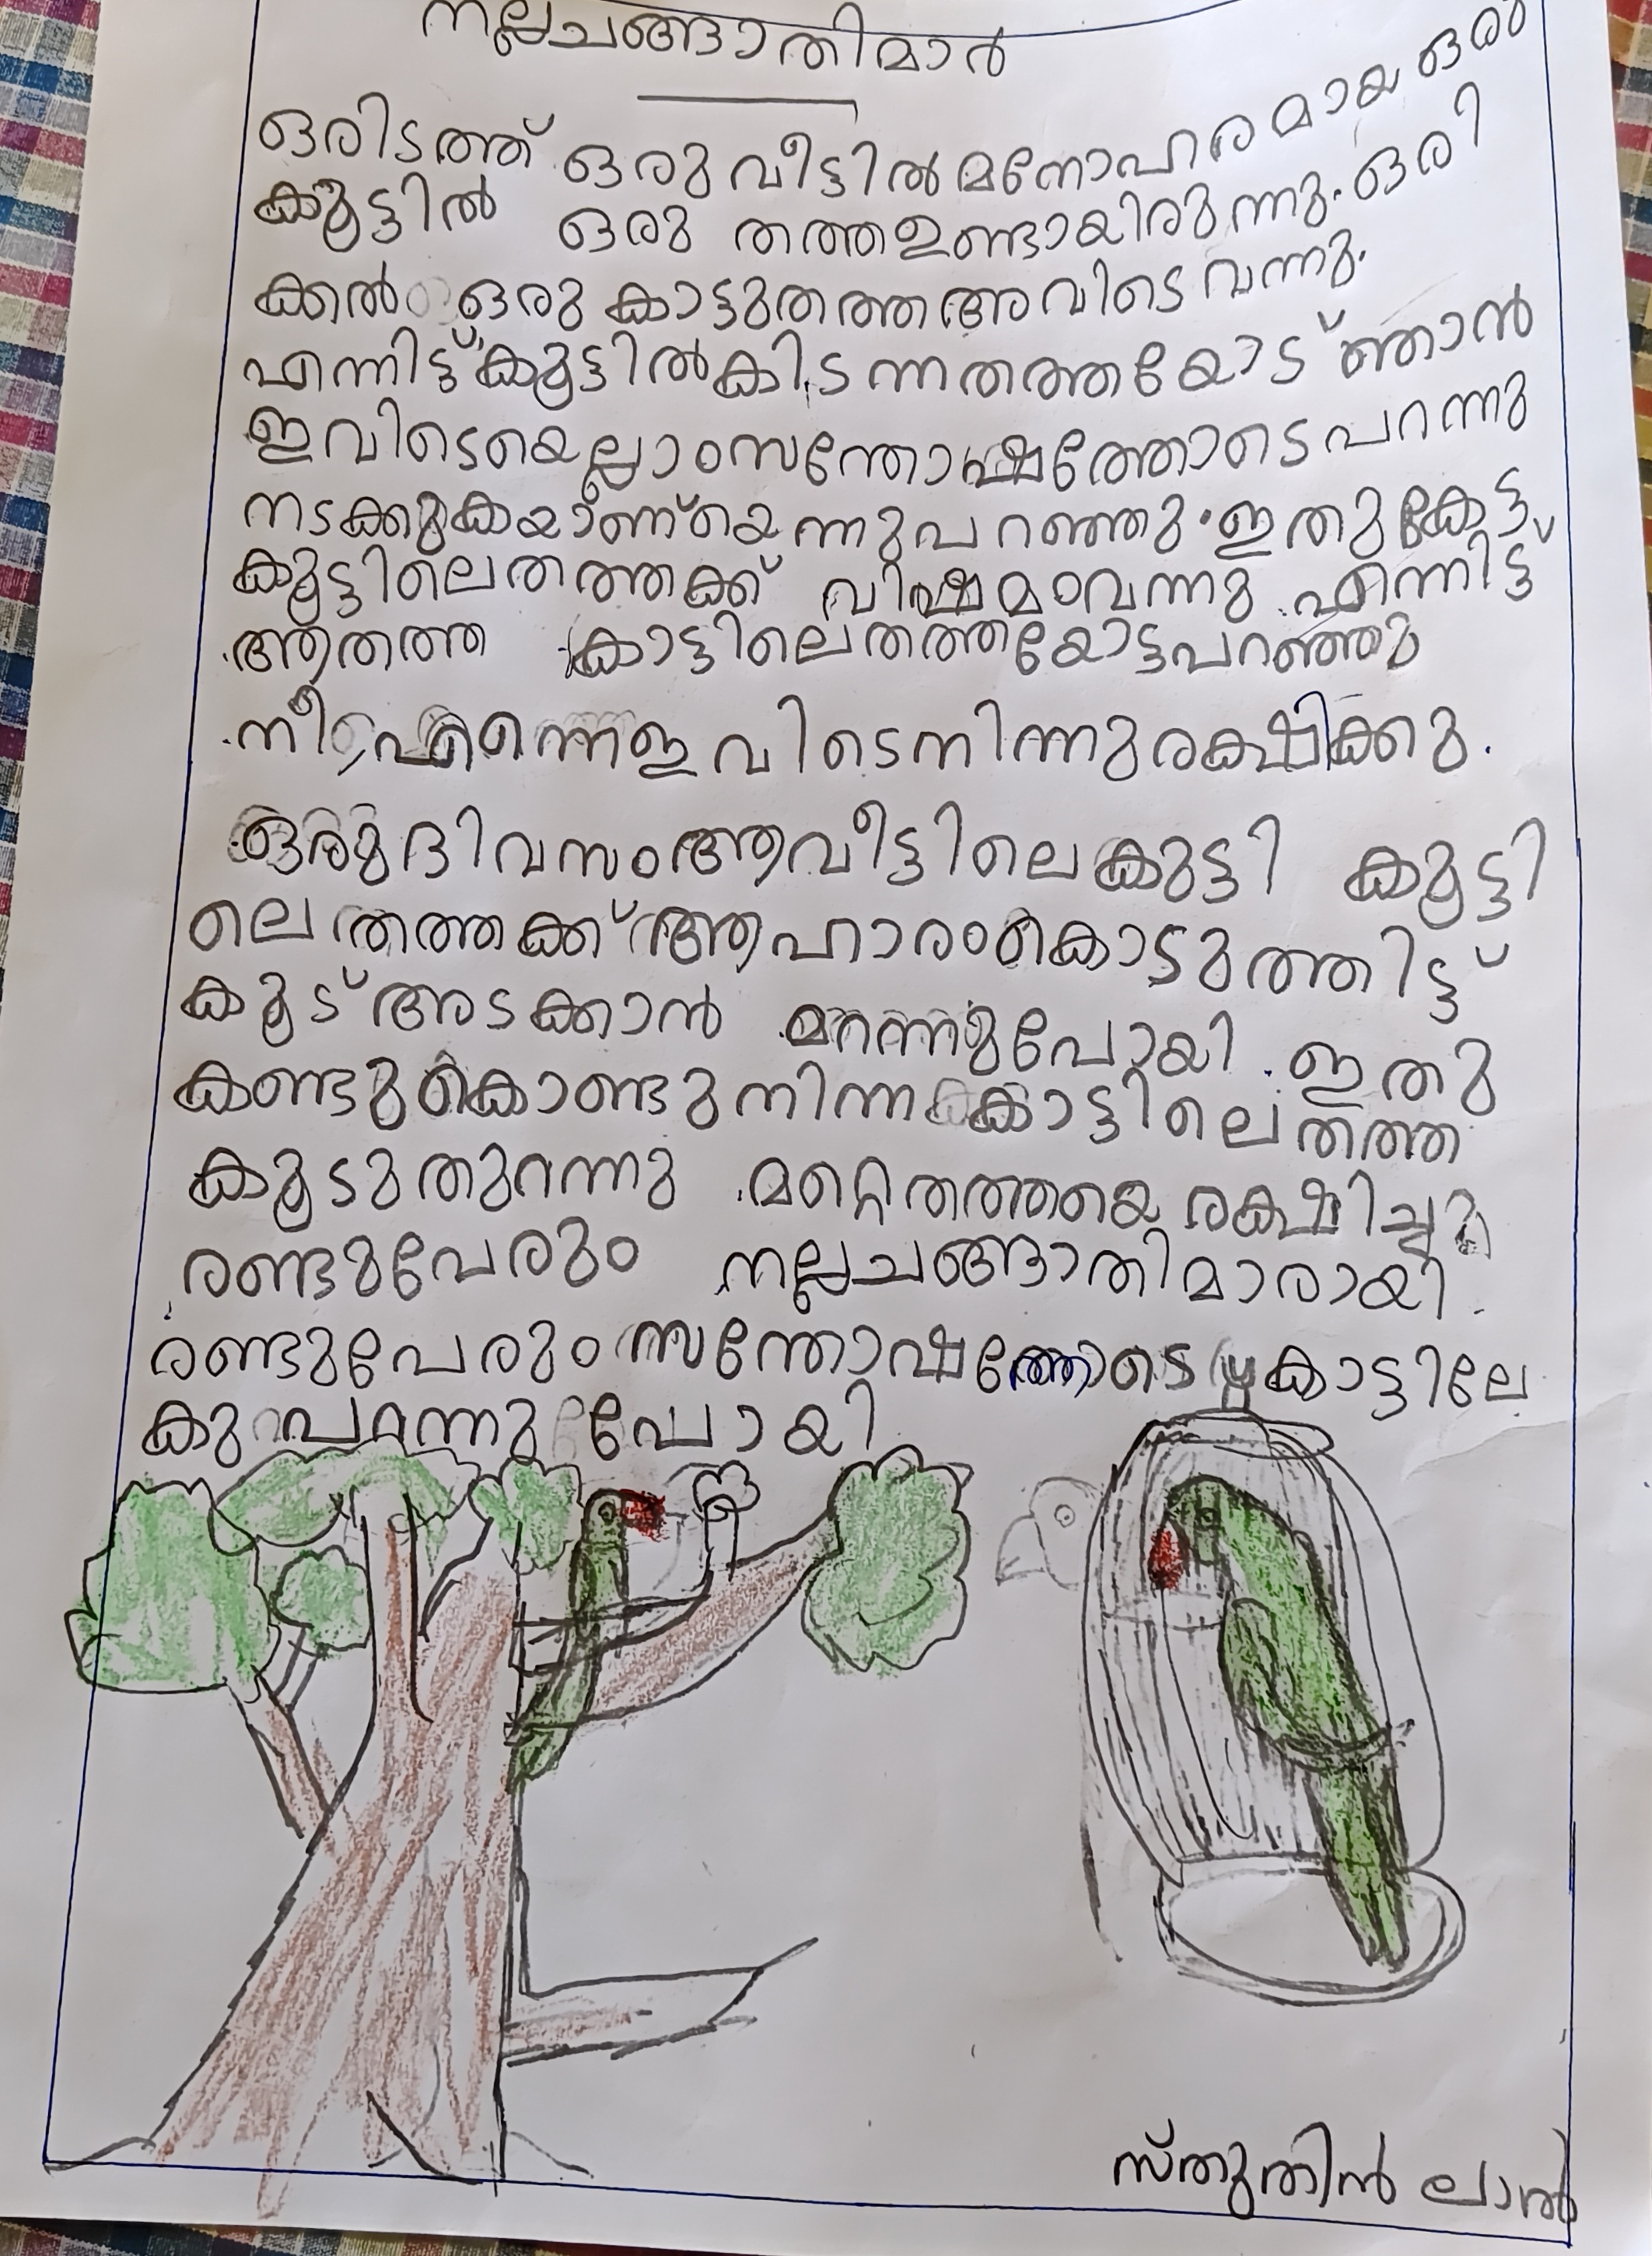 നല്ലചങ്ങാതിമാർ
ഒരിടത്ത് ഒരു വീട്ടിൽ മനോഹരമായ ഒരു
കൂട്ടിൽ ഒരു തത്തഉണ്ടായിരുന്നു. ഒരി
ക്കൽ ഒരു കാട്ടുതത്ത അവിടെ വന്നു.
എന്നിട്ട് കൂട്ടിൽ കിടന്നതത്തയോട് ഞാൻ
ഇവിടെയെല്ലാംസന്തോഷത്തോടെ പറന്നു
നടക്കുകയാണ്യെന്നുപറഞ്ഞു. ഇതുകേട്ട
കൂട്ടിലെതത്തക്ക് വിഷമംവന്നു എന്നിട്ട്
ആതത്ത കാട്ടിലെതത്തയോട്ടപറഞ്ഞു
നീ എന്നെഇവിടെനിന്നുരക്ഷിക്കു.
ഒരുദിവസംആവീട്ടിലെകുട്ടി കൂട്ടി
ലെതത്തക്ക് ആഹാരംകൊടുത്തിട്ട്
കൂട് അടക്കാൻ മറന്നുപോയി. ഇതു
കണ്ടുകൊണ്ടുനിന്ന കാട്ടിലെതത്ത
കൂടുതുറന്നു മറ്റെതത്തയെ രക്ഷിച്ചു
രണ്ടുപേരും നല്ലചങ്ങാതിമാരായി.
രണ്ടുപേരും സന്തോഷത്തോടെ കാട്ടിലേ
കു പറന്നു പോയി
സ്തുതിൻ ലാൽ